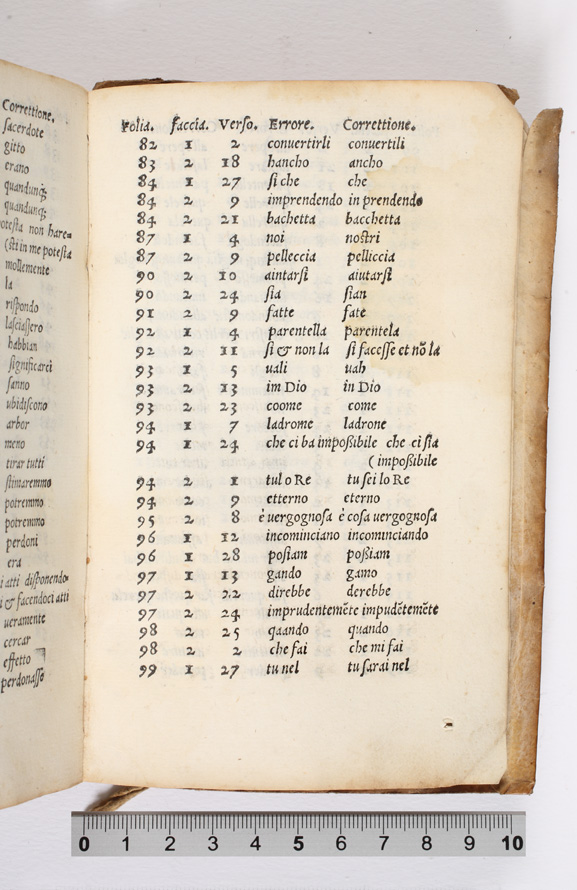 Correttione.
sacerdote
gitto
erano
quandunq;
quandunq;
potesta non hare=
(sti in me potesta
mollemente
la
rispondo
lasciassero
habbian
significarei
sanno
ubidiscono
arbor
meno
tirar tutti
stimaremmo
potremmo
potremmo
perdoni
era
i atti disponendo=
i & facendoci atti
ueramente
cercar
effetto
perdonasse
Folia. faccia. Verso. Errore. Correttione.
82 1 2 conuertirli conuertili
83 2 18 hancho ancho
84 1 27 si che che
84 2 9 imprendendo in prendendo
84 2 21 bachetta bacchetta
87 1 4 noi nostri
87 2 9 pelleccia pelliccia
90 2 10 aintarsi aiutarsi
90 2 24 sia sian
91 2 9 fatte fate
92 1 4 parentella parentela
92 2 11 si & non la si facesse et nõ la
93 1 5 uali uah
93 2 13 im Dio in Dio
93 2 23 coome come
94 1 7 ladrome ladrone
94 1 24 che ci ba impoßibile che ci sia
( impoßibile
94 2 1 tul o Re tu sei lo Re
94 2 9 etterno eterno
95 2 8 è uergognosa è cosa uergognosa
96 1 12 incominciano incominciando
96 1 28 postam poßiam
97 1 13 gando gamo
97 2 22 direbbe derebbe
97 2 24 imprudentemẽte impudẽtemẽte
98 2 25 qaando quando
98 2 2 che fai che mi fai
99 1 27 tu nel tu sarai nel
0 1 2 3 4 5 6 7 8 9 10